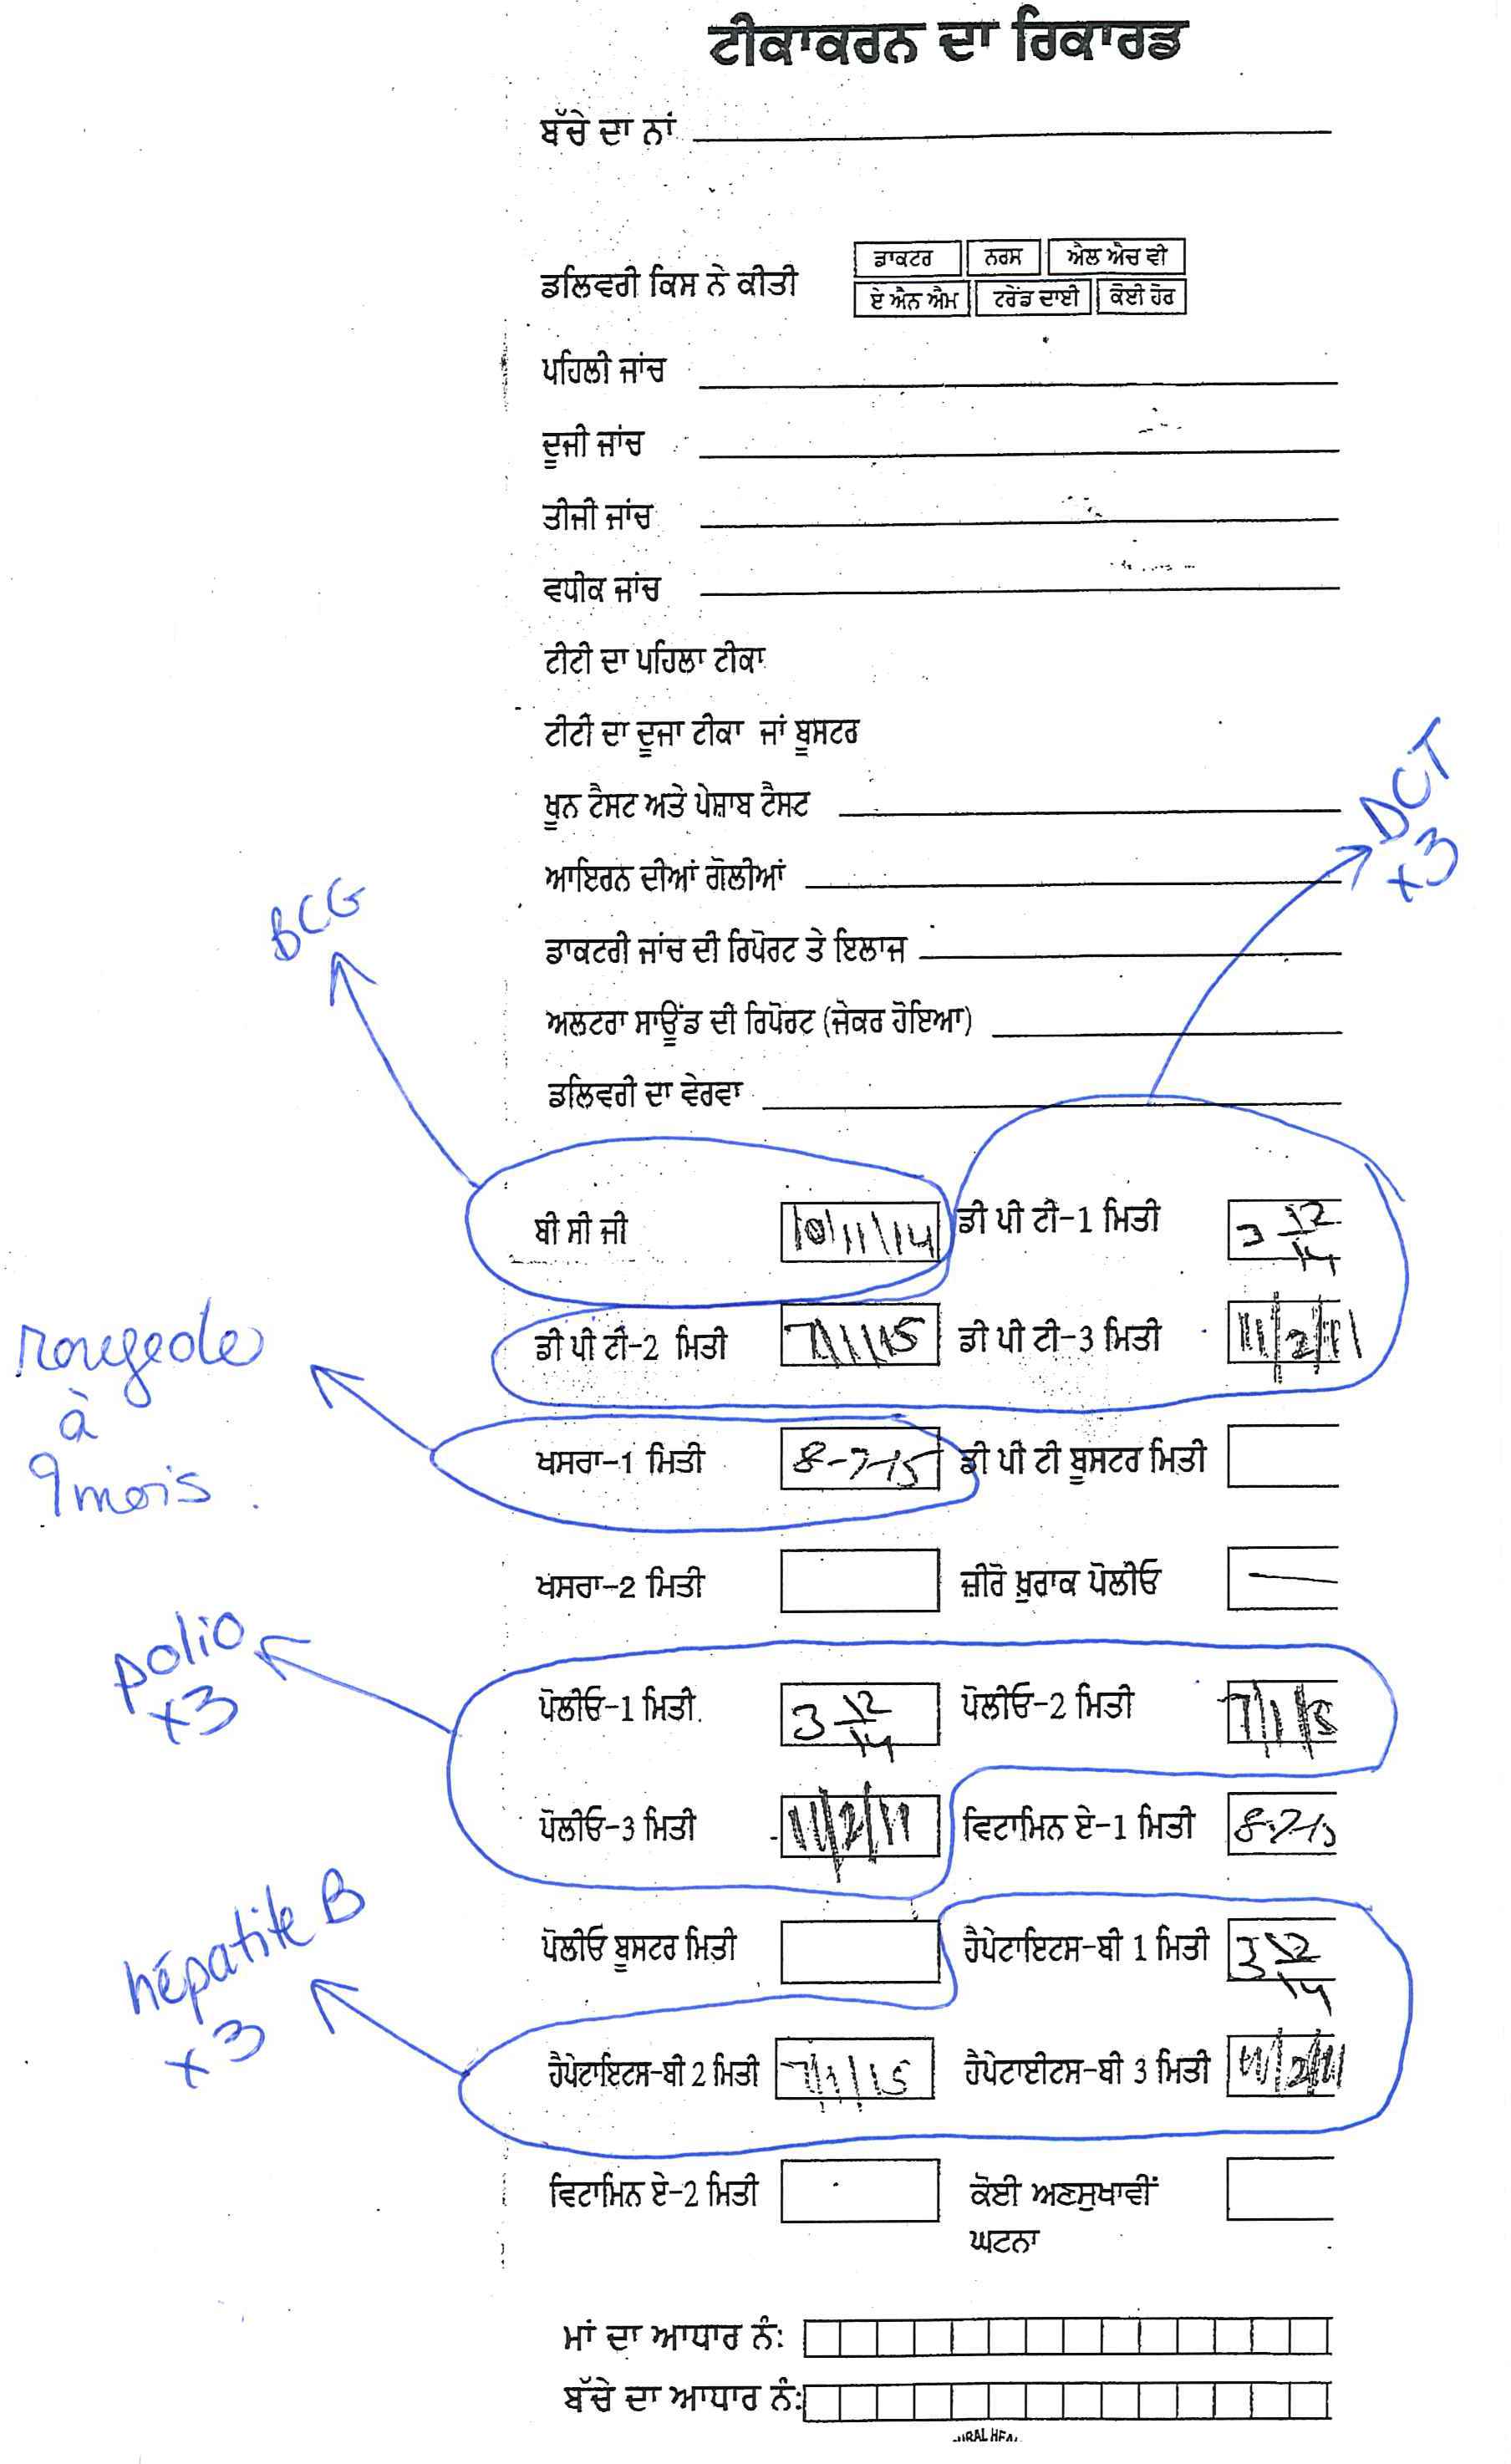 ਟੀਕਾਕਰਨ ਦਾ ਰਿਕਾਰਡ
ਬੱਚੇ ਦਾ ਨਾਂ
ਡਾਕਟਰ ਨਰਸ ਐਲ ਐਚ ਵੀ
ਡਲਿਵਰੀ ਕਿਸ ਨੇ ਕੀਤੀ
ਏ ਐਨ ਐਮ ਟਰੇਂਡ ਦਾਈ ਕੋਈ ਹੋਰ
ਪਹਿਲੀ ਜਾਂਚ
ਦੂਜੀ ਜਾਂਚ
ਤੀਜੀ ਜਾਂਚ
ਵਧੀਕ ਜਾਂਚ
ਟੀਟੀ ਦਾ ਪਹਿਲਾ ਟੀਕਾ
ਟੀਟੀ ਦਾ ਦੂਜਾ ਟੀਕਾ ਜਾਂ ਬੂਸਟਰ
DCT
x3
ਖੂਨ ਟੈਸਟ ਅਤੇ ਪੇਸ਼ਾਬ ਟੈਸਟ
ਆਇਰਨ ਦੀਆਂ ਗੋਲੀਆਂ
BCG
ਡਾਕਟਰੀ ਜਾਂਚ ਦੀ ਰਿਪੋਰਟ ਤੇ ਇਲਾਜ
ਅਲਟਰਾ ਸਾਊਂਡ ਦੀ ਰਿਪੋਰਟ (ਜੇਕਰ ਹੋਇਆ)
ਡਲਿਵਰੀ ਦਾ ਵੇਰਵਾ
ਬੀ ਸੀ ਜੀ 10/11/14 ਡੀ ਪੀ ਟੀ-1 ਮਿਤੀ 3 12/14
ਡੀ ਪੀ ਟੀ-2 ਮਿਤੀ 7/1/15 ਡੀ ਪੀ ਟੀ-3 ਮਿਤੀ 11/2/11
rougeole
à
9 mois.
ਖਸਰਾ-1 ਮਿਤੀ 8-7-15 ਡੀ ਪੀ ਟੀ ਬੂਸਟਰ ਮਿਤੀ
ਖਸਰਾ-2 ਮਿਤੀ ਜ਼ੀਰੋ ਖ਼ੁਰਾਕ ਪੋਲੀਓ —
polio
x3
ਪੋਲੀਓ-1 ਮਿਤੀ 3 12/14 ਪੋਲੀਓ-2 ਮਿਤੀ 7/1/15
ਪੋਲੀਓ-3 ਮਿਤੀ 11/2/11 ਵਿਟਾਮਿਨ ਏ-1 ਮਿਤੀ 8-7-15
hépatite B
x3
ਪੋਲੀਓ ਬੂਸਟਰ ਮਿਤੀ ਹੈਪੇਟਾਇਟਸ-ਬੀ 1 ਮਿਤੀ 3 12/14
ਹੈਪੇਟਾਇਟਸ-ਬੀ 2 ਮਿਤੀ 7/1/15 ਹੈਪੇਟਾਈਟਸ-ਬੀ 3 ਮਿਤੀ 11/2/11
ਵਿਟਾਮਿਨ ਏ-2 ਮਿਤੀ ਕੋਈ ਅਣਸੁਖਾਵੀਂ
ਘਟਨਾ
ਮਾਂ ਦਾ ਆਧਾਰ ਨੰ:
ਬੱਚੇ ਦਾ ਆਧਾਰ ਨੰ: